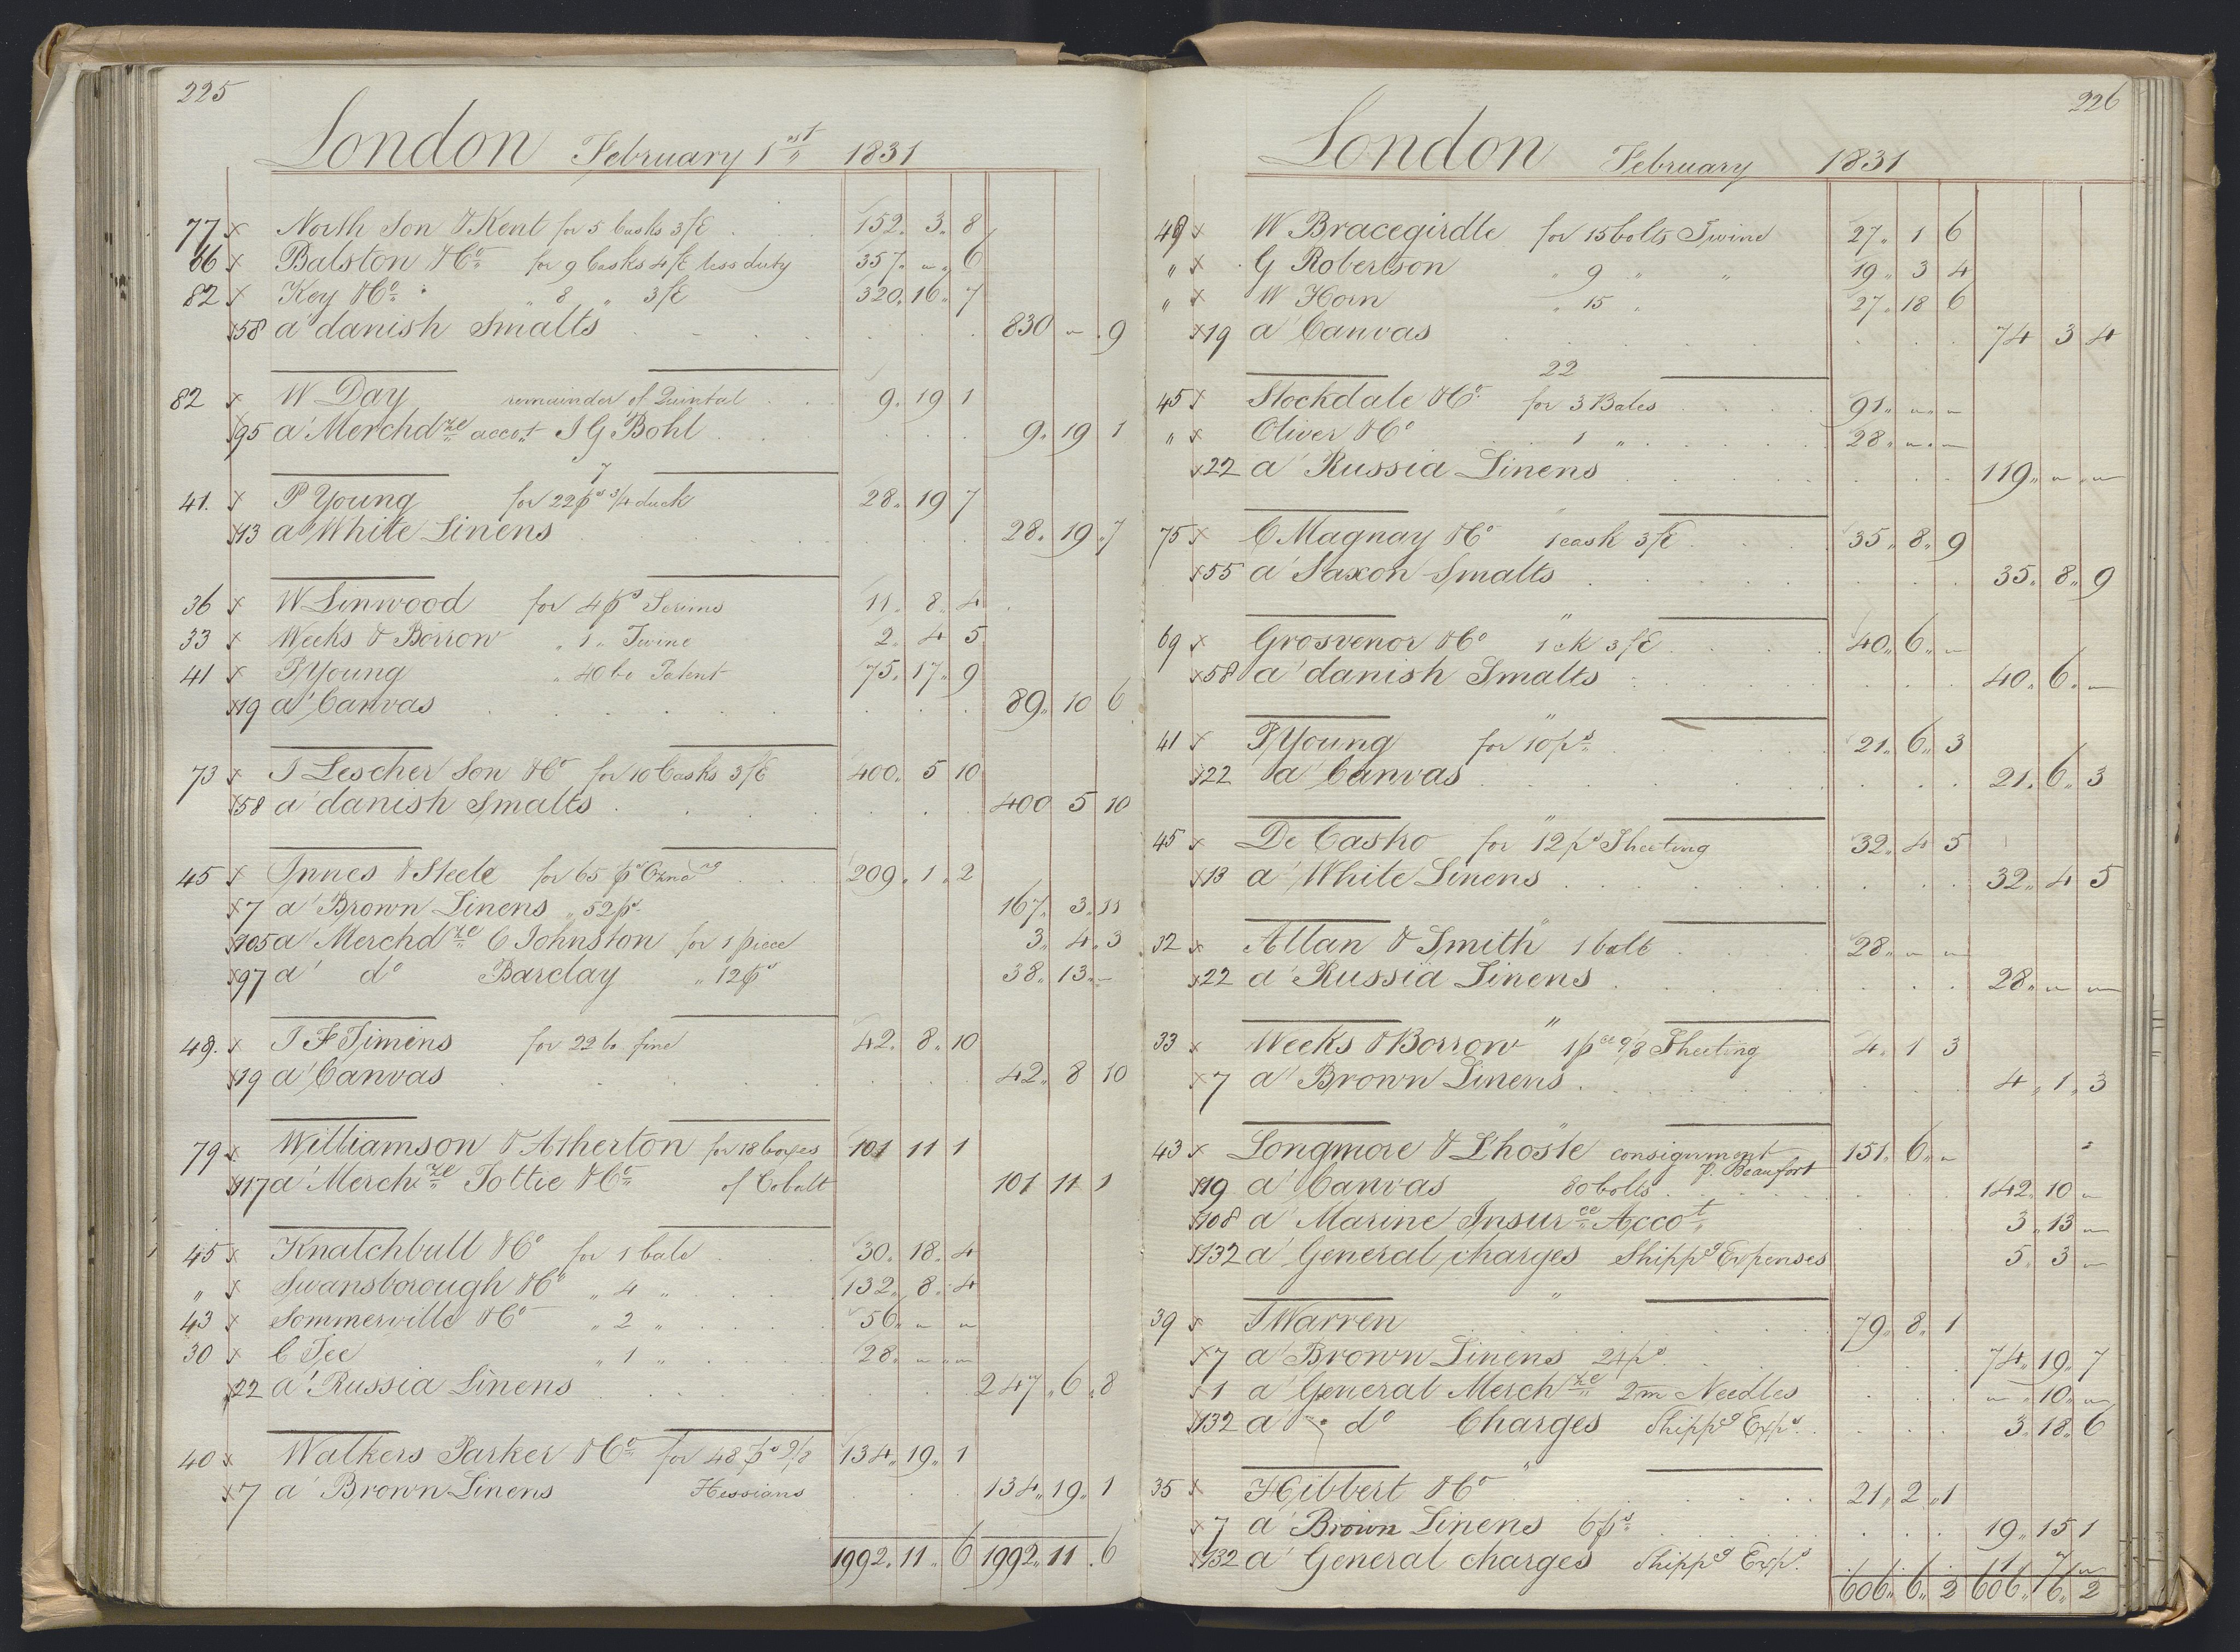 225
London February 1st 1831
77 x North Son & Kent for 5 Casks 3/E 152. 3. 8
66 x Balston & Co for 9 Casks 4/E less duty 357. „ „ 6
82 x Key & Co „ 8 „ 3/E 320. 16. 7
x58 a' danish Smalts 830 „ 9
82 x W Day remainder of Quintal 9. 19 1
x95 a' Merchdze accot J G Bohl 9. 19 1
7
41. x P Young for 22 ps 3/4 duck 28. 19 7
x13 a' White Linens 28. 19. 7
36 x W Linwood for 4 ps Scrims 11. 8. 4
33 x Weeks & Borrow „ 1 „ Twine 2. 4 5
41 x P Young „ 40 bo Patent 75. 17. 9
x19 a' Canvas 89. 10 6
73 x J Lescher Son & Co for 10 Casks 3/E 400. 5 10
x58 a' danish Smalts 400 5 10
45 x Innes & Steele for 65 ps 209. 1. 2
x7 a' Brown Linens „ 52 ps 167. 3. 11
x105 a' Merchdze C Johnston for 1 piece 3. 4. 3
x97 a' do Barclay „ 12 ps 38. 13. „
49. x J F Timins for 22 bo fine 42. 8. 10
x19 a' Canvas 42. 8 10
79 x Williamson & Atherton for 18 boxes 101 11 1
x117 a' Merchze Tottie & Co of Cobalt 101 11 1
45 x Knatchbull & Co for 1 bale 30. 18. 4
„ x Swansborough & Co „ 4 „ 132. 8. 4
43 x Sommerville & Co „ 2 „ 56. „ „
30 x C Tee „ 1 „ 28. „ „
x22 a' Russia Linens 247. 6. 8
40 x Walkers Parker & Co for 48 ps 9/8 134. 19. 1
x7 a' Brown Linens Hessians 134. 19. 1
1992. 11. 6 1992. 11. 6
226
London February 1831
49 x W Bracegirdle for 15 bolts Twine 27. 1 6
„ x G Robertson „ 9 „ „ 19. 3 4
„ x W Horn „ 15 „ 27. 18 6
x19 a' Canvas 74 3 4
22
45 x Stockdale & Co for 3 Bales 91. „ „
„ x Oliver & Co 1 „ 28. „ „
x22 a' Russia Linens 119. „ „
„
75 x C Magnay & Co 1 cask 3/E 35. 8. 9
x55 a' Saxon Smalts 35. 8. 9
„
69 x Grosvenor & Co 1 ck 3/E 40. 6. „
x58 a' danish Smalts 40. 6. „
„
41 x P Young for 10 ps 21. 6. 3
x22 a' Canvas 21. 6. 3
„
45 x De Casko for 12 ps Sheeting 32. 4 5
x13 a' White Linens 32. 4 5
„
32 x Allan & Smith 1 balt 28. „ „
x22 a' Russia Linens 28. „ „
„
33 x Weeks & Borrow 1 pce 9/8 Sheeting 4. 1 3
x7 a' Brown Linens 4. 1. 3
„
43 x Longmore & L'hoste consignment 151. 6. „
p. Beaufort
x19 a' Canvas 80 bolts 142. 10 „
x108 a' Marine Insurce Accot 3. 13 „
x132 a' General charges Shippg Expenses 5. 3 „
„
39 x J Warren 79. 8. 1
x7 a' Brown Linens 24 ps 74. 19. 7
x1 a' General Merchze 2m Needles „ 10. „
x132 a' do Charges Shippg Exps 3. 18. 6
„
35 x Hibbert & Co 21. 2. 1
x7 a' Brown Linens 6 ps 19. 15 1
x132 a' General charges Shippg Exps 1. 7. „
606. 6. 2 606. 6. 2